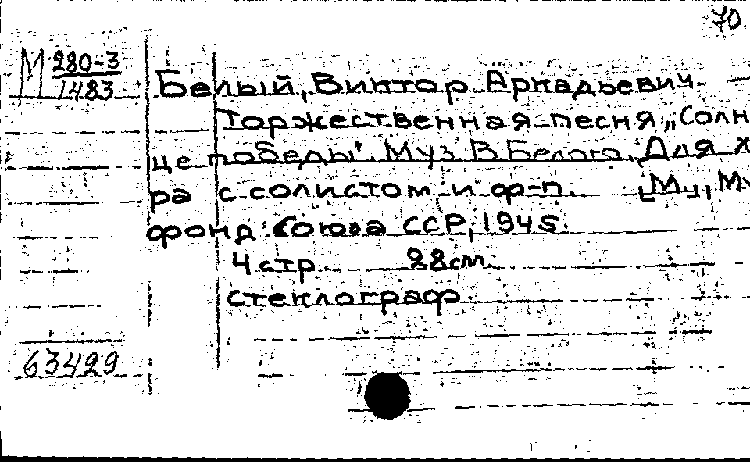 70
М 280-3
1483
Белый, Виктор Аркадьевич
Торжественная песня „Солн
це победы". Муз. В. Белого. Для х
ра с солистом и ф-п. [М.], М
фонд Союза ССР, 1945.
4 стр. 28 см.
стеклограф
63429